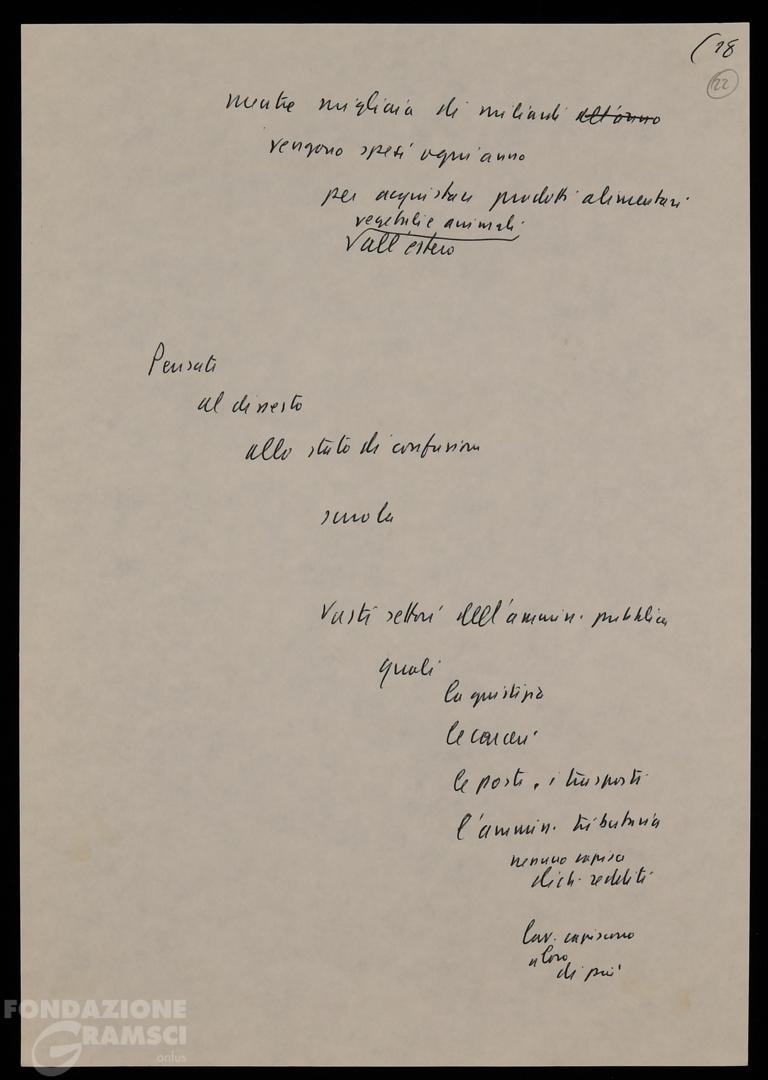 (18
22
mentre migliaia di miliardi all'anno
vengono spesi ogni anno
per acquistare prodotti alimentari
vegetali e animali
√all'estero
Pensate
al dissesto
allo stato di confusione
scuola
Vasti settori dell'ammin. pubblica
quali
la giustizia
le carceri
le poste, i trasporti
l'ammin. tributaria
nessuno capisce
dich. redditi
lav. capiscono
di più
FONDAZIONE
GRAMSCI
onlus